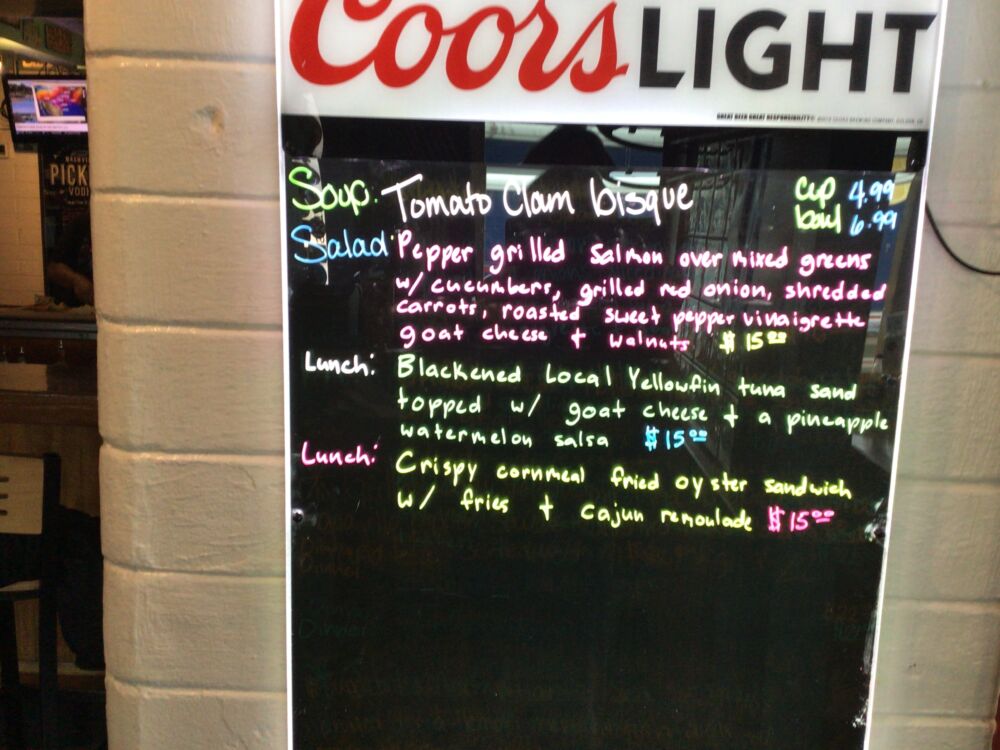 Coors LIGHT
GREAT BEER GREAT RESPONSIBILITY®
PICK
VODK
Soup: Tomato Clam bisque cup 4.99
bowl 6.99
Salad: Pepper grilled Salmon over mixed greens
w/ cucumbers, grilled red onion, shredded
carrots, roasted sweet pepper vinaigrette
goat cheese + walnuts $15.00
Lunch: Blackened Local Yellowfin tuna sand
topped w/ goat cheese + a pineapple
watermelon salsa $15.00
Lunch: Crispy cornmeal fried oyster sandwich
w/ fries + cajun remoulade $15.00
Dinner